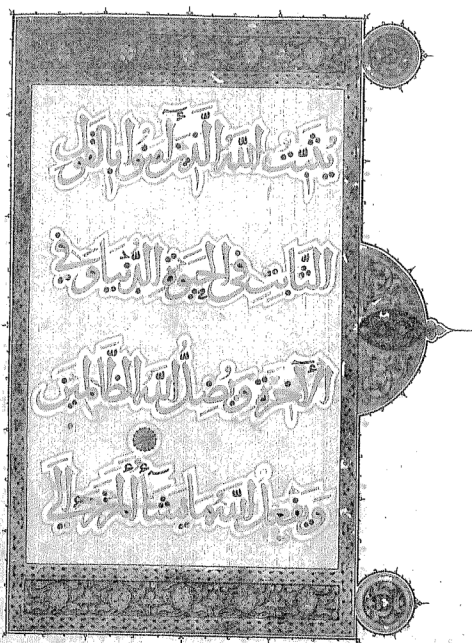 يثبت الله الذين آمنوا بالقول
الثابت في الحيوة الدنيا وفي
الآخرة ويضل الله الظالمين
ويفعل الله ما يشآء ألم تر إلى